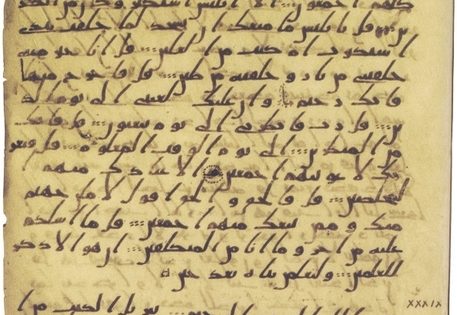 كلهم اجمعون الا ابليس استكبر وكان من الكفر
ين قل يابليس ما منعك ان تسجد لما خلقت بيدي
استكبرت ام كنت من العلين قل انا خير منه
خلقتني من نار و خلقته من طين قل فاخرج منها
فانك رجيم وان عليك لعنتي الى يوم الد
ين قل رب فانظرني الى يوم يبعثون قل فانك
من المنظرين الى يوم الوقت المعلوم قل فبعز
تك لاغوينهم اجمعين الا عبادك منهم
المخلصين قل فالحق والحق اقول لاملن جهنم
منك وممن تبعك منهم اجمعين قل ما اسلكم
عليه من اجر وما انا من المتكلفين ان هو الا ذكر
للعلمين ولتعلمن نباه بعد حين
XXXIX